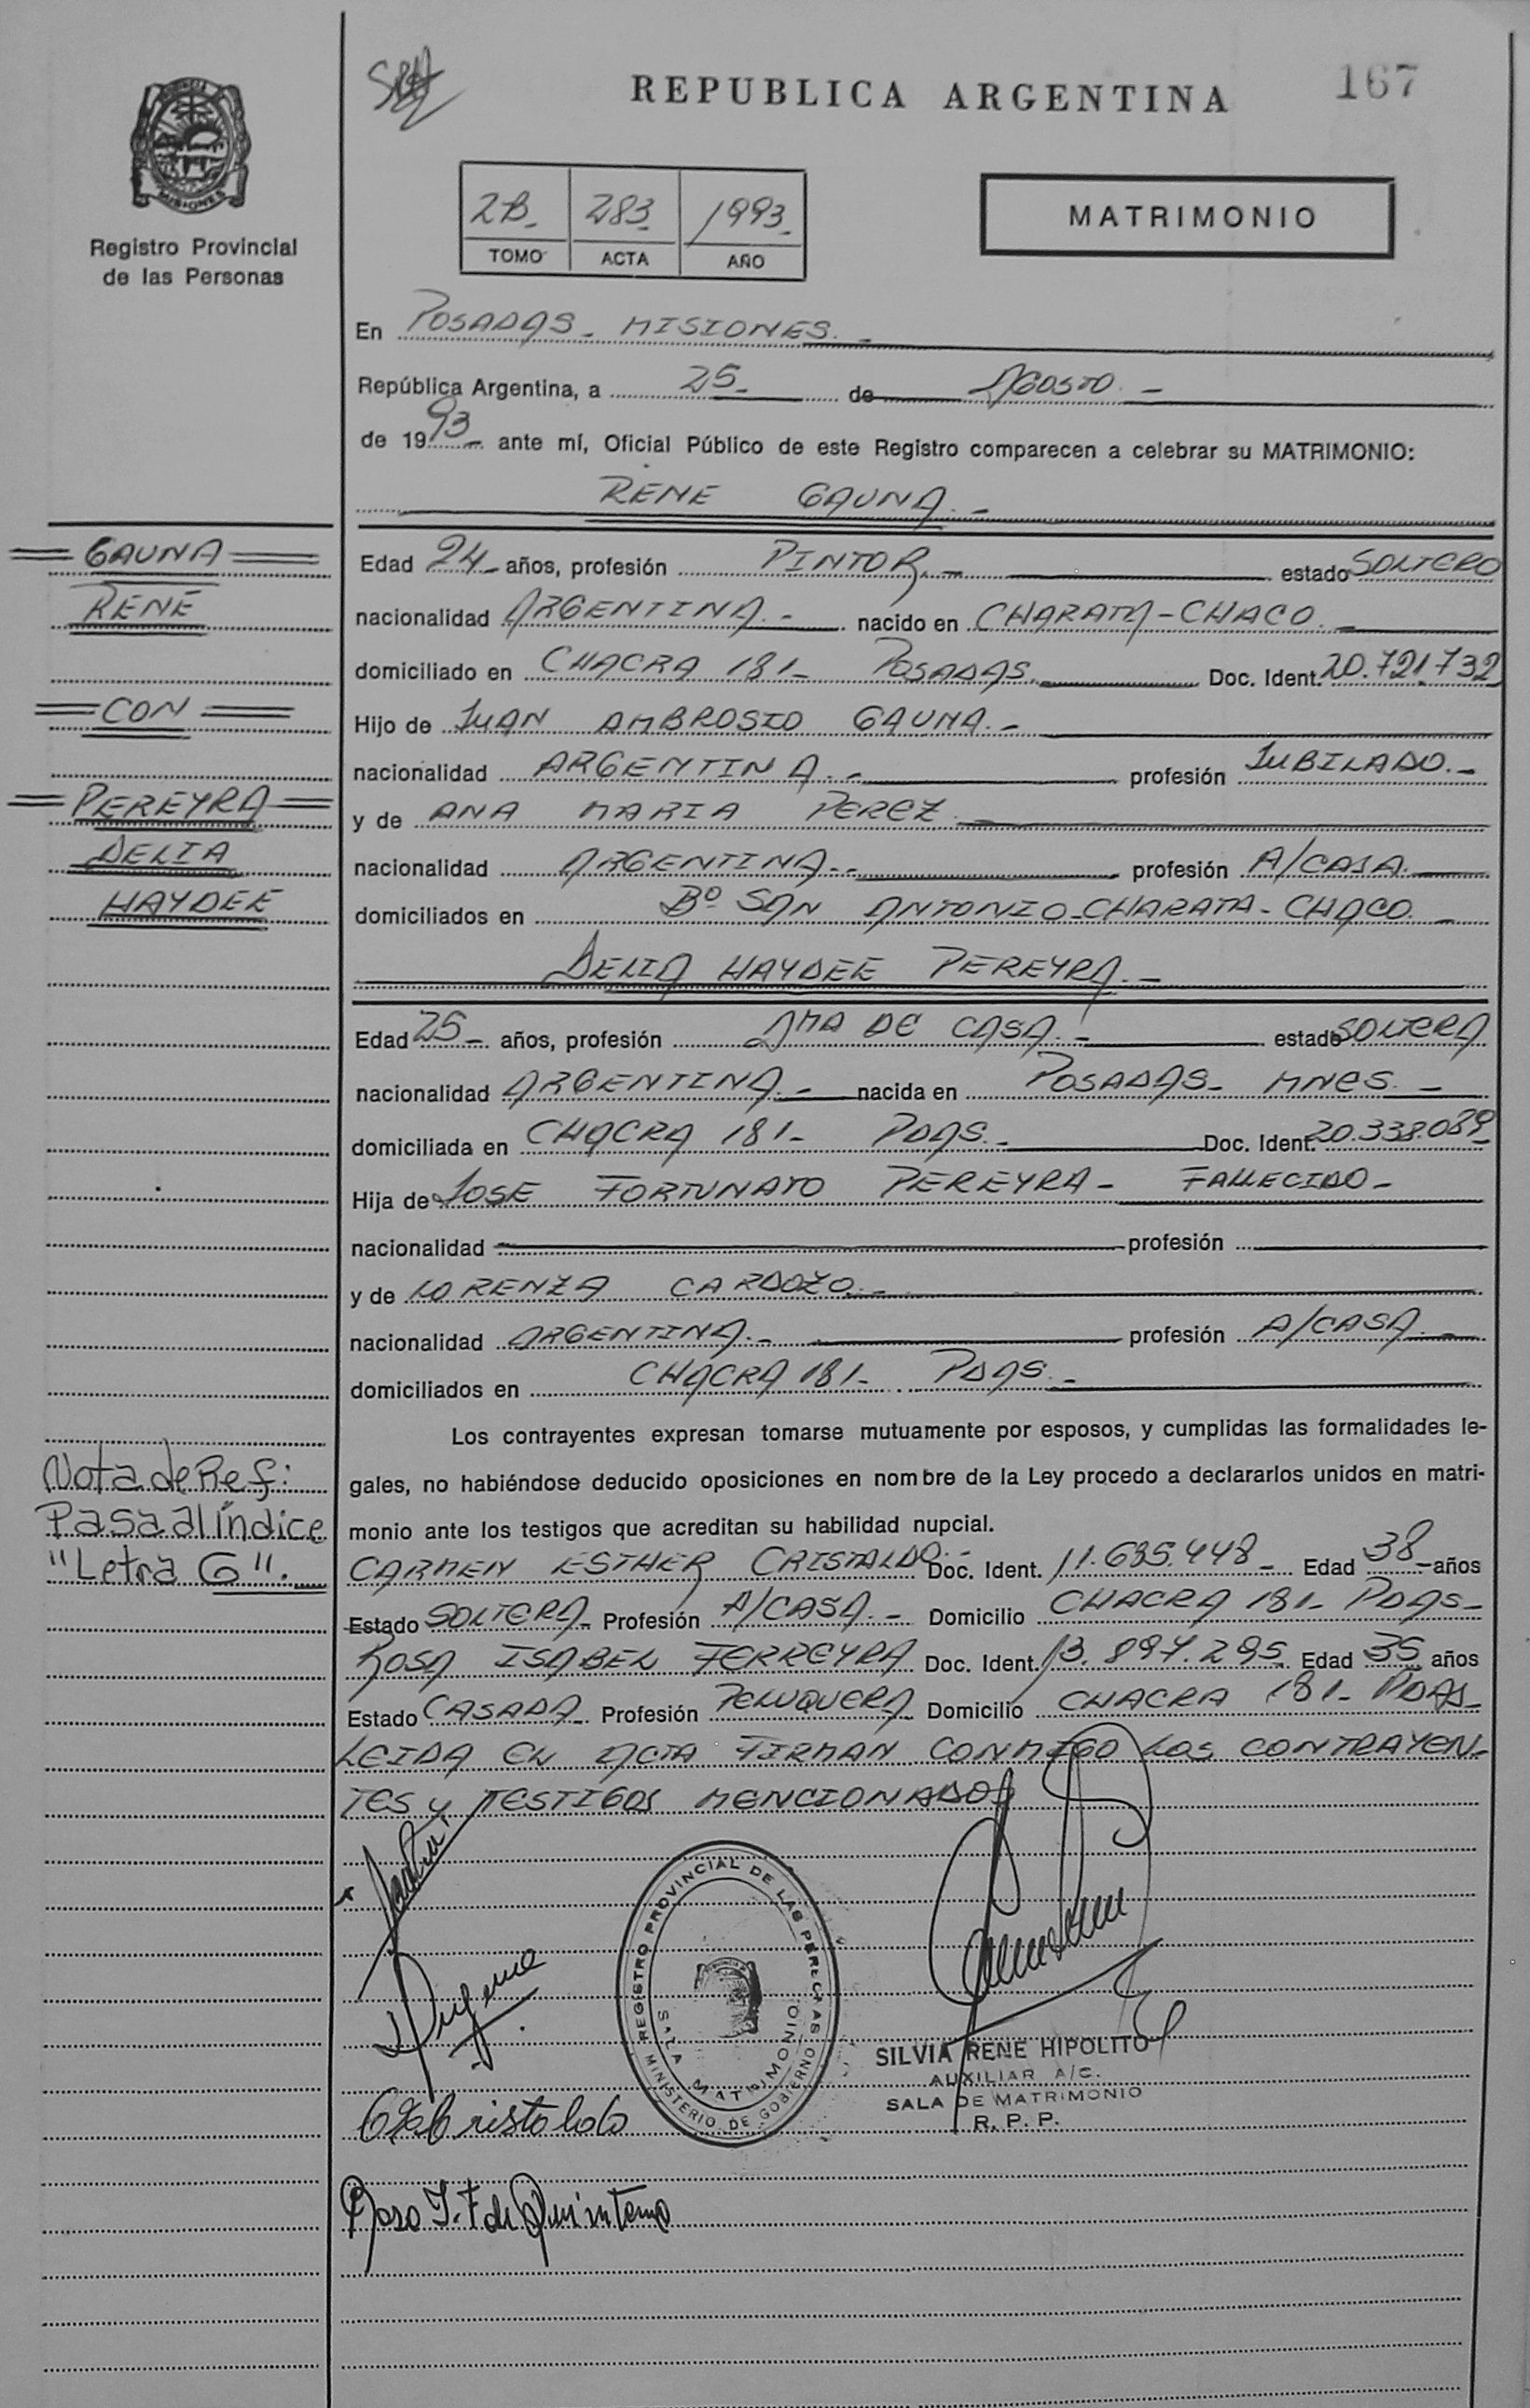 REPUBLICA ARGENTINA
167
MISIONES
Registro Provincial
de las Personas
2B_ 283_ 1993_
TOMO ACTA AÑO
MATRIMONIO
En POSADAS_ MISIONES._
República Argentina, a 25_ de AGOSTO._
de 1993_ ante mí, Oficial Público de este Registro comparecen a celebrar su MATRIMONIO:
RENE GAUNA._
GAUNA
RENÉ
CON
PEREYRA
DELIA
HAYDEE
Edad 24_ años, profesión PINTOR._ estado SOLTERO
nacionalidad ARGENTINA._ nacido en CHARATA-CHACO._
domiciliado en CHACRA 181_ POSADAS. Doc. Ident. 20.721.732
Hijo de JUAN AMBROSIO GAUNA._
nacionalidad ARGENTINA._ profesión JUBILADO._
y de ANA MARIA PEREZ._
nacionalidad ARGENTINA._ profesión A/CASA.
domiciliados en Bº SAN ANTONIO-CHARATA- CHACO._
DELIA HAYDEE PEREYRA._
Edad 25_ años, profesión AMA DE CASA._ estado SOLTERA
nacionalidad ARGENTINA._ nacida en POSADAS_ MNES._
domiciliada en CHACRA 181_ PDAS._ Doc. Ident. 20.338.089_
Hija de JOSE FORTUNATO PEREYRA_ FALLECIDO_
nacionalidad profesión
y de LORENZA CARDOZO._
nacionalidad ARGENTINA._ profesión A/CASA._
domiciliados en CHACRA 181_ PDAS._
Los contrayentes expresan tomarse mutuamente por esposos, y cumplidas las formalidades le-
gales, no habiéndose deducido oposiciones en nombre de la Ley procedo a declararlos unidos en matri-
monio ante los testigos que acreditan su habilidad nupcial.
Nota de Ref:
Pasa al índice
"Letra G".
CARMEN ESTHER CRISTALDO._ Doc. Ident. 11.635.448_ Edad 38_ años
Estado SOLTERA_ Profesión A/CASA._ Domicilio CHACRA 181_ PDAS_
ROSA ISABEL FERREYRA Doc. Ident. 13.897.295_ Edad 35_ años
Estado CASADA_ Profesión PELUQUERA_ Domicilio CHACRA 181_ PDAS_
LEIDA EL ACTA FIRMAN CONMIGO LOS CONTRAYEN-
TES y TESTIGOS MENCIONADOS
REGISTRO PROVINCIAL DE LAS PERSONAS
SALA MATRIMONIO
MINISTERIO DE GOBIERNO
SILVIA RENE HIPOLITO
AUXILIAR A/C.
SALA DE MATRIMONIO
R. P. P.
Rosa I. F de Quintana